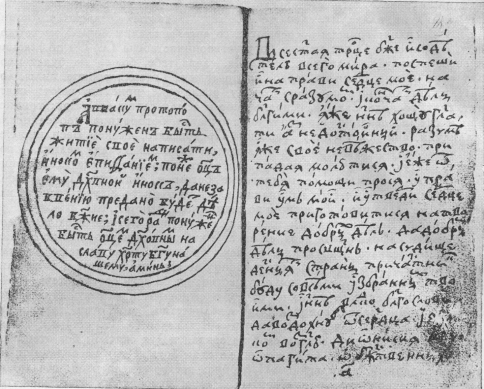 Аввакум протопо
пъ понуженъ бысть
житие свое написати,
иноко м епифание м, понеж ѡц҃ъ
ему дх҃овной инокъ, да не за
бвению предано буде т дѣ
ло бж҃ие; и сего ра ди понуже
бысть ѡц҃е м дх҃овны м на
славу хрс҃ту бг҃у на
шему. аминь.
Пресвѣтая трц҃е, бж҃е и содѣ
тель всего мира. поспеши
и направи се р дце мое, на
ча ти с разумо м, и ко нча ти дѣлы
бл҃гими. яже нн҃ѣ хощу гл҃а
ти а з недостойный. разумѣ
я же свое невѣжество, при
падая молю ти ся, и еже ѿ
тебя помощи прося, упра
ви умъ мой, и утверди се р дце
мое приготовитися на тво
рение добры х дѣлъ. да добры
дѣлы просвѣще н, на судище
десныя ти страны прича стни к
буду со всѣми избранны ми тво
ими. и нн҃ѣ влд҃ко бл҃гослови
да воздохну в ѿ се р дца и язы
ко м возгл҃ю, дионисия
ѡ бж҃ственны х